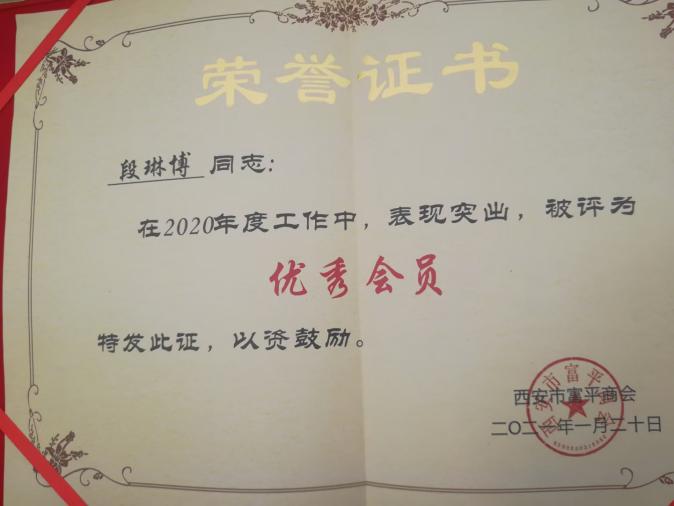 荣誉证书
段琳博 同志:
在2020年度工作中，表现突出，被评为
优秀会员
特发此证，以资鼓励。
西安市富平商会
二〇二一年一月二十日
西安市富平商会